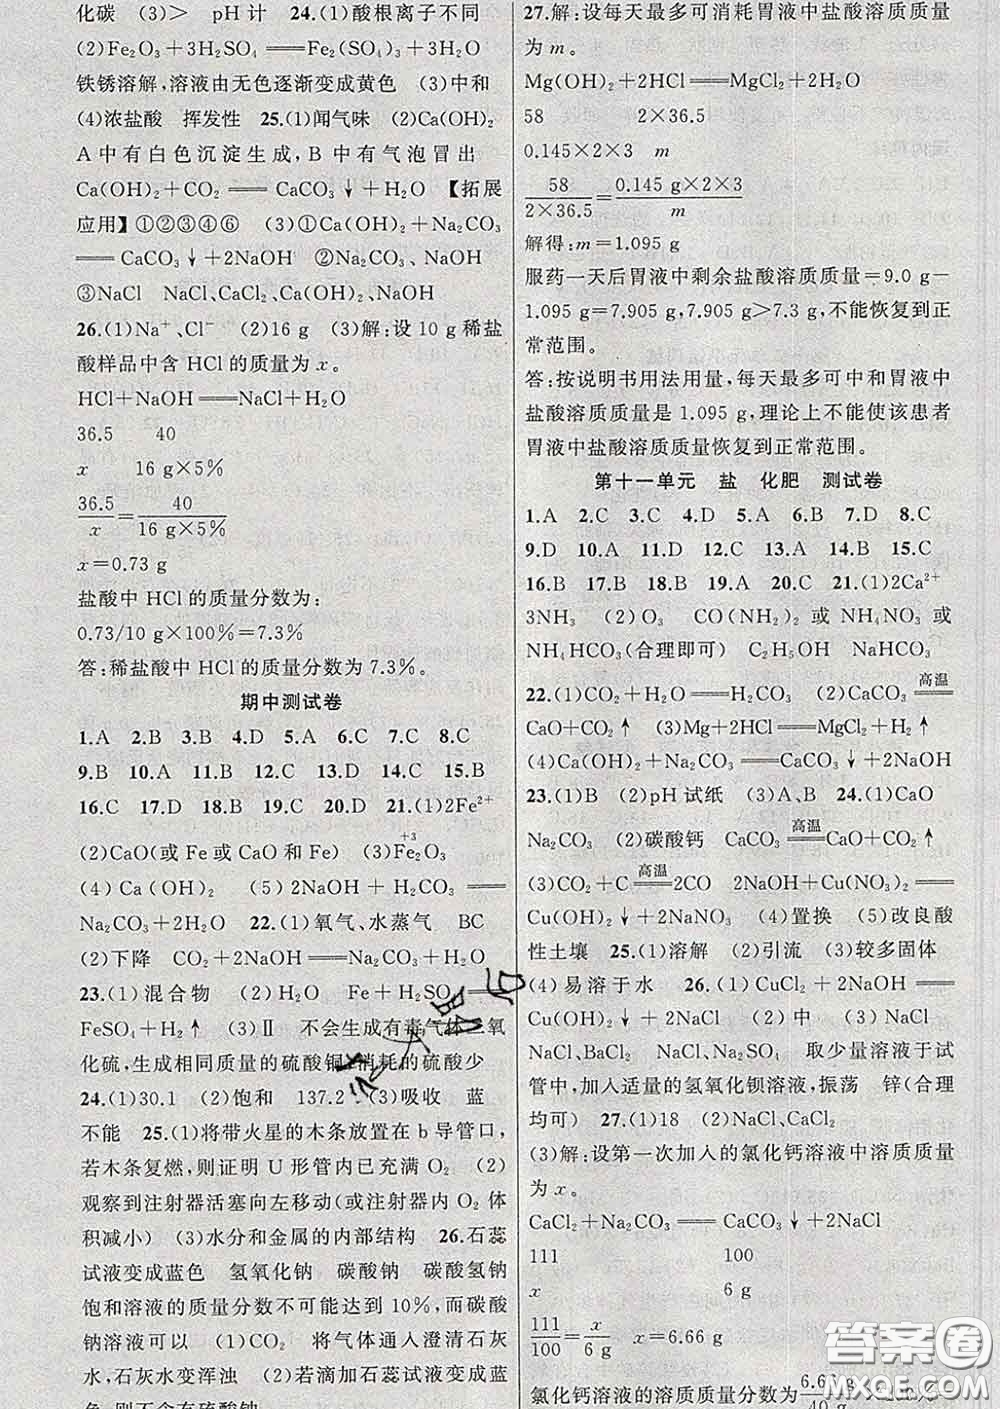 化碳　(3)>　pH计　24.(1)酸根离子不同
(2)Fe₂O₃+3H₂SO₄══Fe₂(SO₄)₃+3H₂O
铁锈溶解,溶液由无色逐渐变成黄色　(3)中和
(4)浓盐酸　挥发性　25.(1)闻气味　(2)Ca(OH)₂
A中有白色沉淀生成,B中有气泡冒出
Ca(OH)₂+CO₂══CaCO₃↓+H₂O　【拓展
应用】①②③④⑥　(3)①Ca(OH)₂+Na₂CO₃
══CaCO₃↓+2NaOH　②NaOH、Na₂CO₃
③NaCl　NaCl、CaCl₂、Ca(OH)₂、NaOH
26.(1)Na⁺、Cl⁻　(2)16 g　(3)解:设10 g稀盐
酸样品中含HCl的质量为x。
HCl+NaOH══NaCl+H₂O
36.5　40
x　16 g×5%
36.5/x=40/(16 g×5%)
x=0.73 g
盐酸中HCl的质量分数为:
0.73/10 g×100%=7.3%
答:稀盐酸中HCl的质量分数为7.3%。
期中测试卷
1.A　2.B　3.B　4.D　5.A　6.C　7.C　8.C
9.B　10.A　11.C　12.D　13.D　14.C　15.B
16.C　17.D　18.B　19.C　20.D　21.(1)2Fe²⁺
(2)CaO(或Fe或CaO和Fe)　(3)Fe₂O₃(Fe上方+3)
(4)Ca(OH)₂　(5)2NaOH+H₂CO₃══
Na₂CO₃+2H₂O　22.(1)氧气、水蒸气　BC
(2)下降　CO₂+2NaOH══Na₂CO₃+H₂O
23.(1)混合物　(2)H₂O　Fe+H₂SO₄══
FeSO₄+H₂↑　(3)Ⅱ　不会生成有毒气体二氧
化硫,生成相同质量的硫酸铜,消耗的硫酸少
24.(1)30.1　(2)饱和　137.2　(3)吸收　蓝
不能　25.(1)将带火星的木条放置在b导管口,
若木条复燃,则证明U形管内已充满O₂　(2)
观察到注射器活塞向左移动(或注射器内O₂体
积减小)　(3)水分和金属的内部结构　26.石蕊
试液变成蓝色　氢氧化钠　碳酸钠　碳酸氢钠
饱和溶液的质量分数不可能达到10%,而碳酸
钠溶液可以　(1)CO₂　将气体通入澄清石灰
水,石灰水变浑浊　(2)若滴加石蕊试液变成蓝
色,则不含碳酸钠
27.解:设每天最多可消耗胃液中盐酸溶质质量
为m。
Mg(OH)₂+2HCl══MgCl₂+2H₂O
58　2×36.5
0.145×2×3　m
58/(2×36.5)=(0.145 g×2×3)/m
解得:m=1.095 g
服药一天后胃液中剩余盐酸溶质质量=9.0 g-
1.095 g=7.905 g,7.905 g>7.3 g,不能恢复到正
常范围。
答:按说明书用法用量,每天最多可中和胃液中
盐酸溶质质量是1.095 g,理论上不能使该患者
胃液中盐酸溶质质量恢复到正常范围。
第十一单元　盐　化肥　测试卷
1.A　2.C　3.C　4.D　5.A　6.B　7.D　8.C
9.D　10.A　11.D　12.C　13.A　14.B　15.C
16.B　17.B　18.B　19.A　20.C　21.(1)2Ca²⁺
3NH₃　(2)O₃　CO(NH₂)₂或NH₄NO₃或
NH₄HCO₃(合理即可)　C₂H₅OH　NaHCO₃
22.(1)CO₂+H₂O══H₂CO₃　(2)CaCO₃ 高温══
CaO+CO₂↑　(3)Mg+2HCl══MgCl₂+H₂↑
(4)Ca(OH)₂+Na₂CO₃══CaCO₃↓+2NaOH
23.(1)B　(2)pH试纸　(3)A、B　24.(1)CaO
Na₂CO₃　(2)碳酸钙　CaCO₃ 高温══CaO+CO₂↑
(3)CO₂+C 高温══2CO　2NaOH+Cu(NO₃)₂══
Cu(OH)₂↓+2NaNO₃　(4)置换　(5)改良酸
性土壤　25.(1)溶解　(2)引流　(3)较多固体
(4)易溶于水　26.(1)CuCl₂+2NaOH══
Cu(OH)₂↓+2NaCl　(2)中　(3)NaCl
NaCl、BaCl₂　NaCl、Na₂SO₄　取少量溶液于试
管中,加入适量的氢氧化钡溶液,振荡　锌(合理
均可)　27.(1)18　(2)NaCl、CaCl₂
(3)解:设第一次加入的氯化钙溶液中溶质质量
为x。
CaCl₂+Na₂CO₃══CaCO₃↓+2NaCl
111　100
x　6 g
111/100=x/6 g　x=6.66 g
氯化钙溶液的溶质质量分数为6.66 g/40 g
答案圈